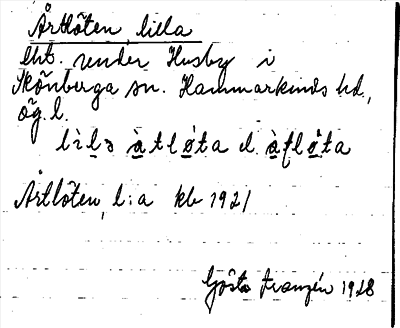 Årtlöten, lilla
lht. under Husby i
Skönberga sn. Hammarkinds hd.,
Ög. l.
lìlə àtløta el. àfløta
Årtlöten, l:a kb 1921
Gösta Franzén 1928